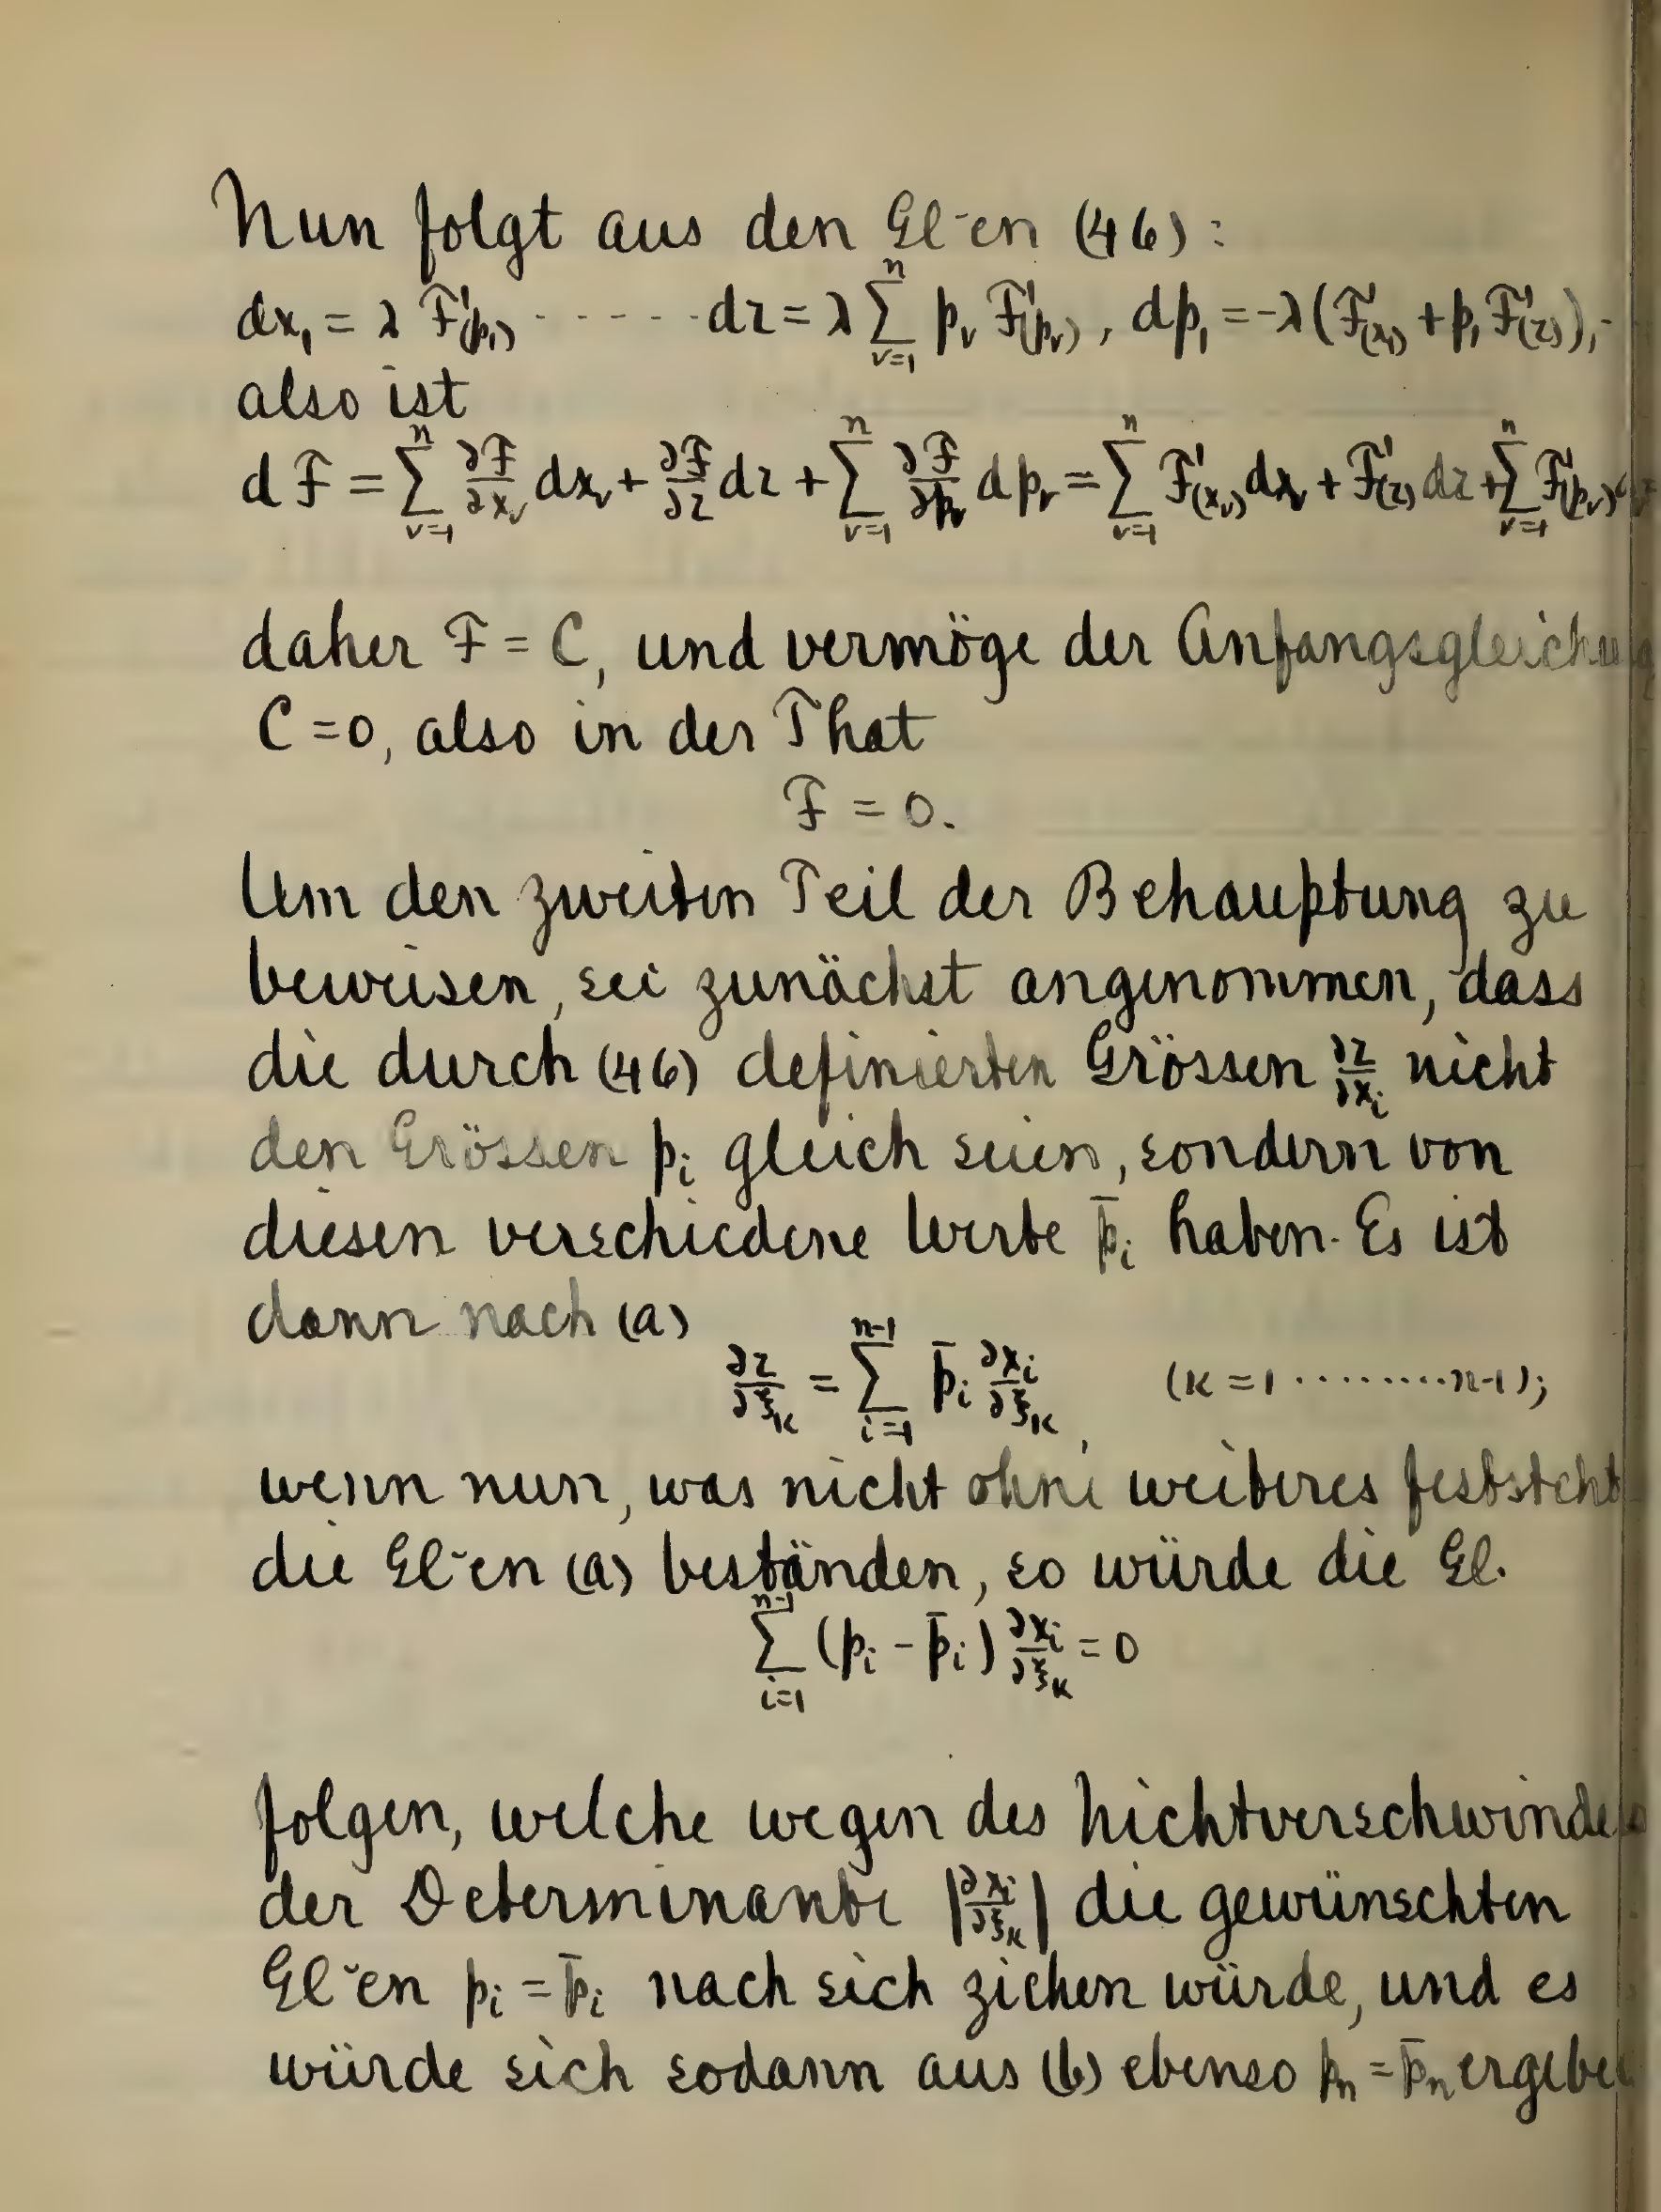 Nun folgt aus den Gl-en (46):
dx₁ = λ F'(p₁) ------ dz = λ ∑_{ν=1}^{n} p_ν F'(p_ν), dp₁ = -λ(F'(x₁) + p₁F'(z)),-
also ist
dF = ∑_{ν=1}^{n} ∂F/∂x_ν dx_ν + ∂F/∂z dz + ∑_{ν=1}^{n} ∂F/∂p_ν dp_ν = ∑_{ν=1}^{n} F'(x_ν)dx_ν + F'(z) dz + ∑_{ν=1}^{n} F'(p_ν)
daher F = C, und vermöge der Anfangsgleichung
C = 0, also in der That
F = 0.
Um den zweiten Teil der Behauptung zu
beweisen, sei zunächst angenommen, dass
die durch (46) definierten Grössen ∂z/∂x_i nicht
den Grössen p_i gleich seien, sondern von
diesen verschiedene Werte p̄_i haben. Es ist
dann nach (a)
∂z/∂ξ_κ = ∑_{i=1}^{n-1} p̄_i ∂x_i/∂ξ_κ, (κ = 1 ········ n-1);
wenn nun, was nicht ohne weiteres feststeht
die Gl-en (a) beständen, so würde die Gl.
∑_{i=1}^{n-1} (p_i - p̄_i) ∂x_i/∂ξ_κ = 0
folgen, welche wegen des Nichtverschwinden
der Determinante |∂x_i/∂ξ_κ| die gewünschten
Gl-en p_i = p̄_i nach sich ziehen würde, und es
würde sich sodann aus (b) ebenso p_n = p̄_n ergeben